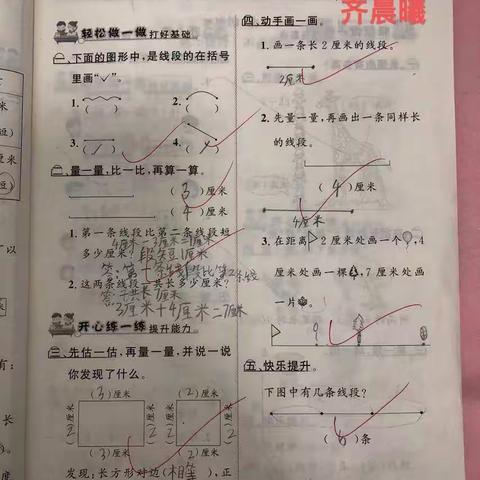 齐晨曦
轻松做一做 打好基础。
一、下面的图形中，是线段的在括号
里画“✓”。
1.
2.
3.
4.
二、量一量，比一比，再算一算。
(3)厘米
(4)厘米
1. 第一条线段比第二条线段短
多少厘米？
4厘米-3厘米=1厘米
2. 这两条线段一共长多少厘米？
3厘米+4厘米=7厘米
开心练一练 提升能力。
三、先估一估，再量一量，并说一说
你发现了什么。
(3)厘米
(2)厘米
(3)厘米
(2)厘米
发现：长方形对边(相等)，正
四、动手画一画。
1. 画一条长2厘米的线段。
2厘米
2. 先量一量，再画出一条同样长
的线段。
(4)厘米
4厘米
3. 在距离 2厘米处画一个 ，4
厘米处画一棵 ，7厘米处画
一片 。
五、快乐提升。
下图中有几条线段？
(6)条